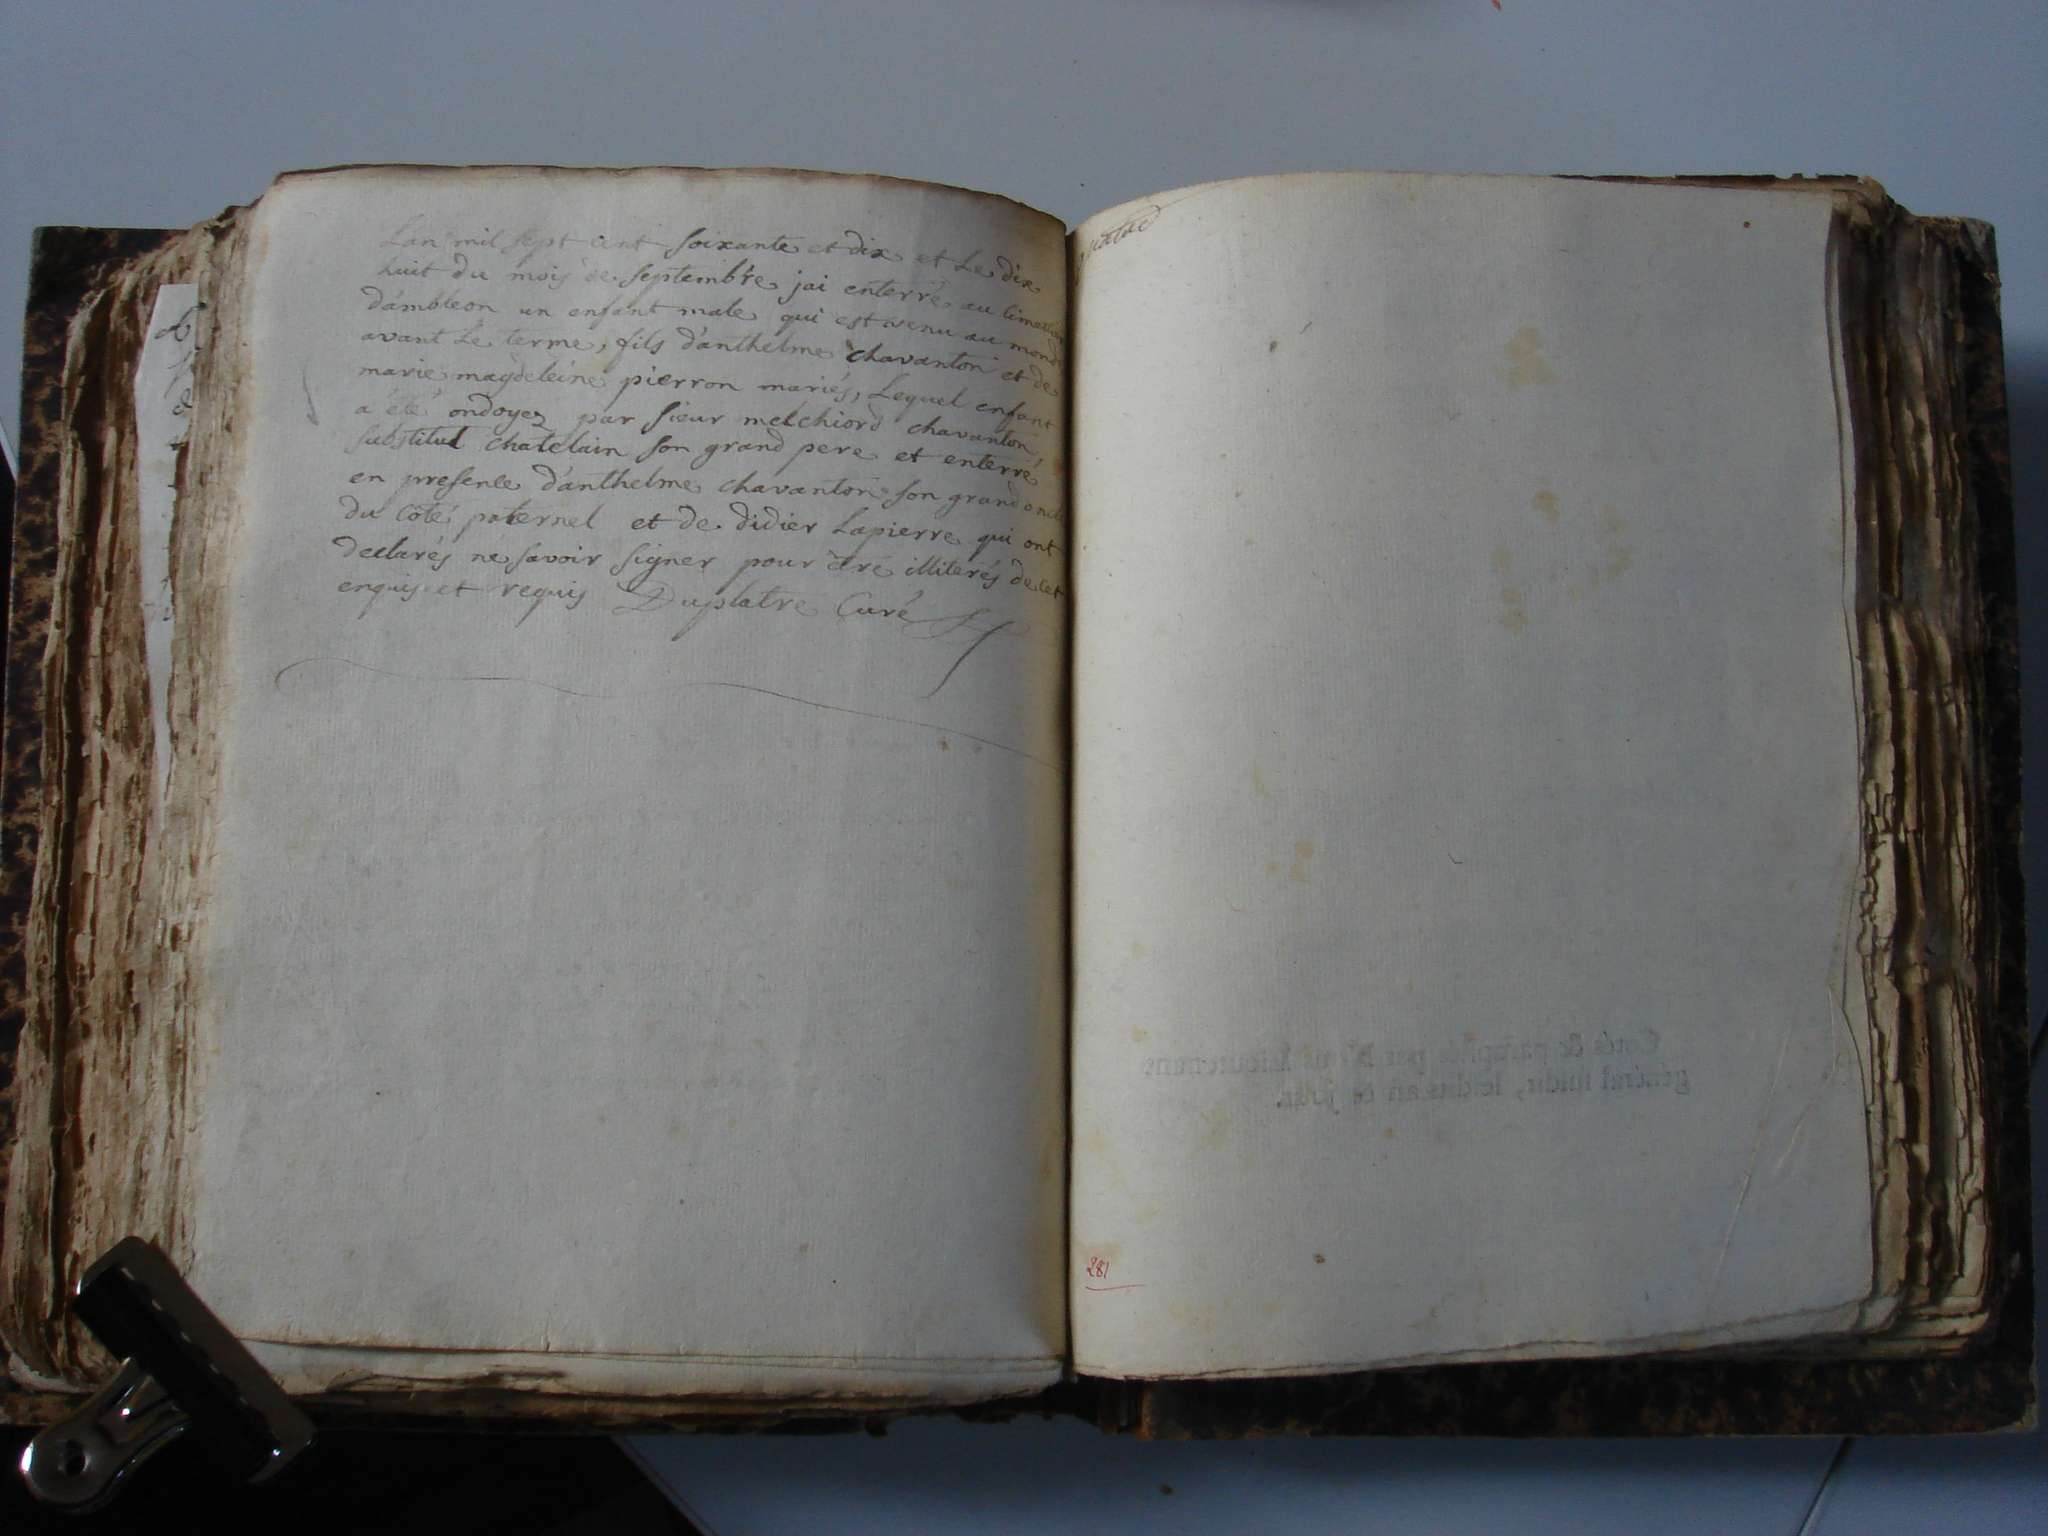 Lan mil sept cent soixante et dix et le dix
huit du mois de septembre jai enterré au cimetiere
dambleon un enfant male qui est venu au monde
avant le terme, fils d'anthelme chavanton et de
marie magdeleine pierron mariés, Lequel enfant
a été ondoyez par sieur melchiord chavanton
substitut chatelain son grand pere et enterré
en presence d'anthelme chavanton son grand oncle
du côté paternel et de didier Lapierre qui ont
declarés ne savoir signer pour être illiterés de cet
enquis et requis Duplatre Curé
Cotés & paraphés par Nous Lieutenant
général susdit, lesdits an & jour.
281